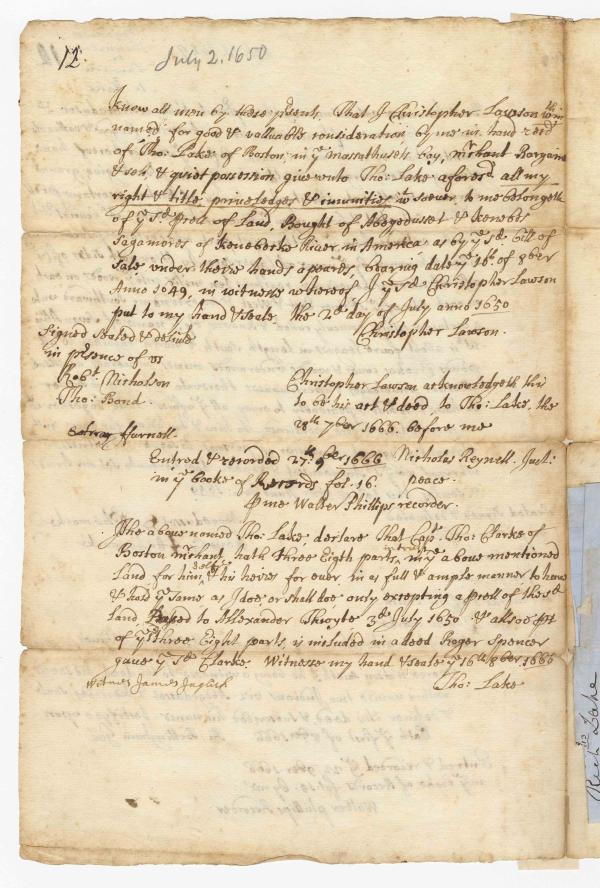 12.
July 2. 1650
Know all men by these p'sents, That I Christopher Lawson w'thin
named for good & valluable consideration by me in hand rec'd
of Tho: Lake of Boston, in ye Massathusets bay, m'chant Bargaine
& sell, & quiet possession give unto Tho: Lake afores'd all my
right & title, priveledges & imunities w't soever to me belongeth
of ye sd p'sell of Land, Bought of Abegedusset & Kenebes
Sagamores of Kenebecke River in America as by ye sd bill of
Sale under theire hands apeares, bearing date ye 16th of 8ber
Anno 1649, in witnesse whereof I ye sd Christopher Lawson
put to my hand & seale, the 2d day of July anno 1650
Christopher Lawson.
Signed sealed & deliv'd
in p'sence of us
Robt. Nicholson
Tho: Bond.
Hurnell.
Christopher Lawson acknowledgeth this
to be his act & deed, to Tho: Lake, the
28th 7ber 1666. before me
Nicholas Reynell. Just:
peace.
Entred & recorded 27th 9ber 1666
in ye booke of Records fol. 16.
p me Walter Phillips recorder.
I the above named Tho: Lake, declare That Capt. Tho: Clarke of
Boston m'chant, hath three Eigth parts in ye above mentioned
Land, for him selfe & his heires for ever in as full & ample manner to have
& hold ye same as I doe, or shall doe only excepting a p'sell of the sd
land, leased to Allexander Thwoyte 3d July 1650 & allsoe pt
of ye sd three Eight parts, is included in a deed Roger Spencer
gave ye sd Clarke. Witnesse my hand & seale ye 16th 8ber 1666
Tho: Lake
witnes James Inglish
Rich Lake